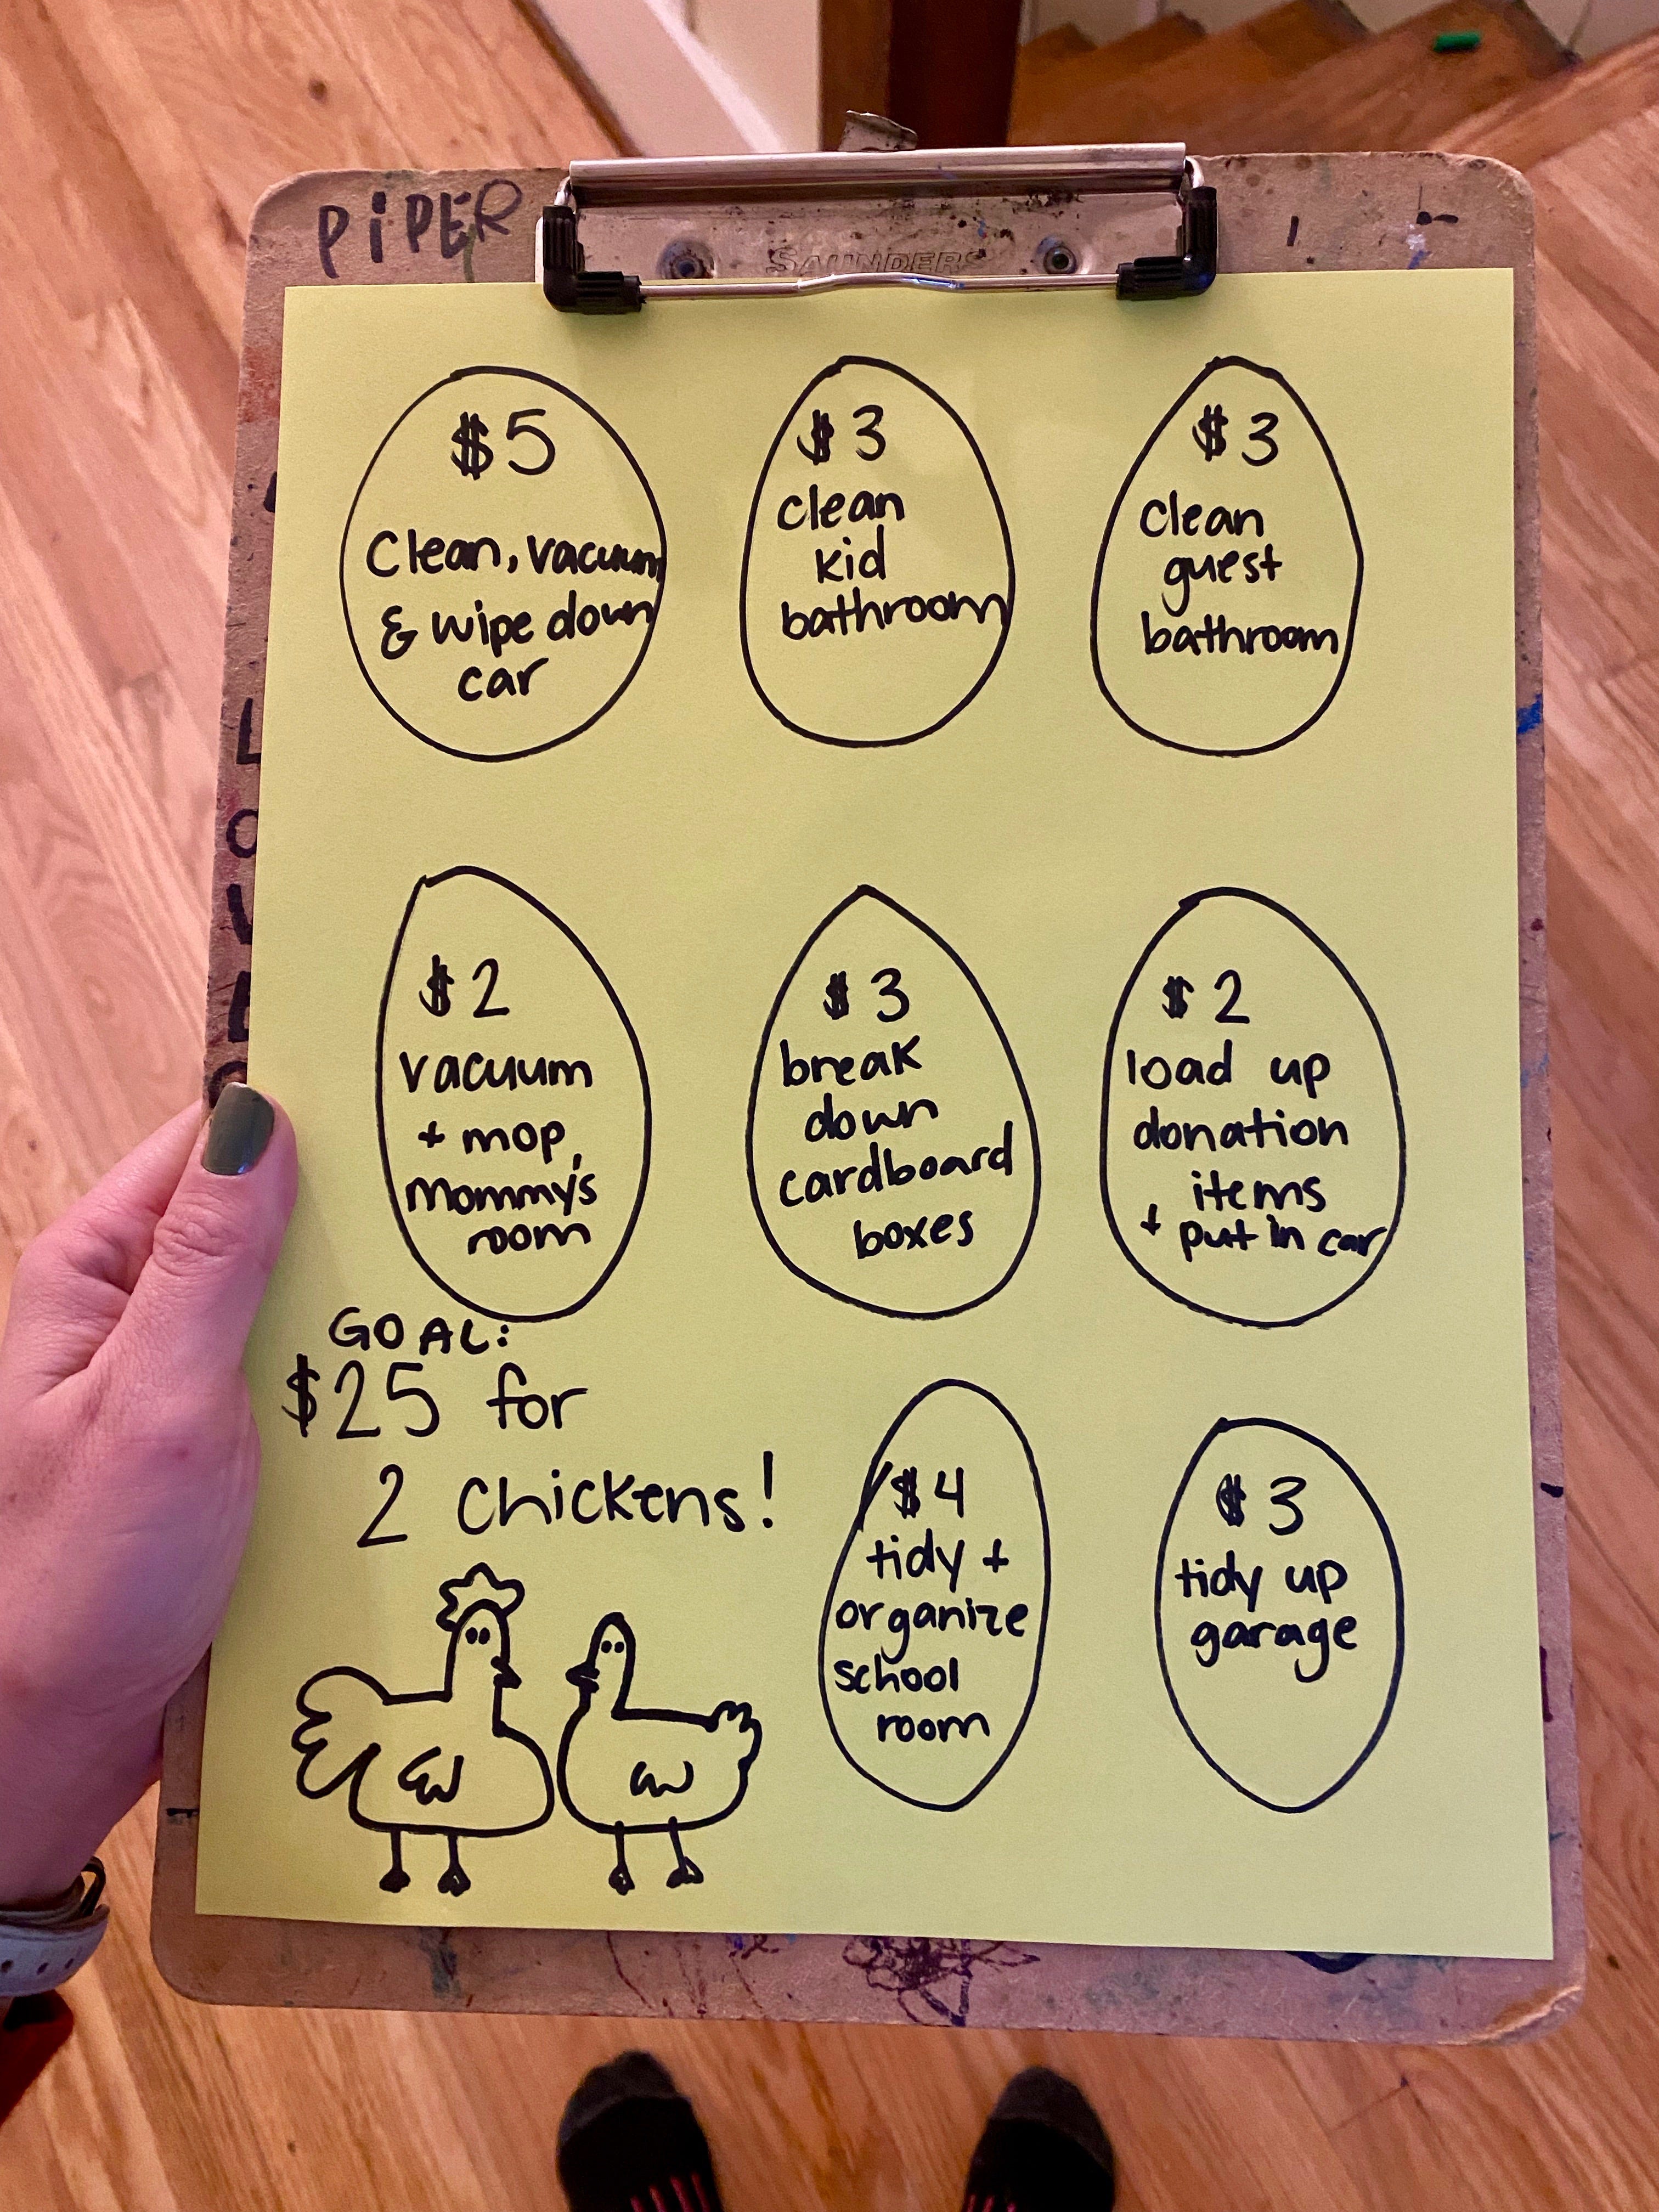 PiPER
SAUNDERS
$5
Clean, vacuum
& wipe down
car
$3
clean
kid
bathroom
$3
clean
guest
bathroom
L
O
V
E
$2
vacuum
+ mop
Mommy's
room
$3
break
down
cardboard
boxes
$2
load up
donation
items
+ put in car
GOAL:
$25 for
2 Chickens!
$4
tidy +
organize
school
room
$3
tidy up
garage